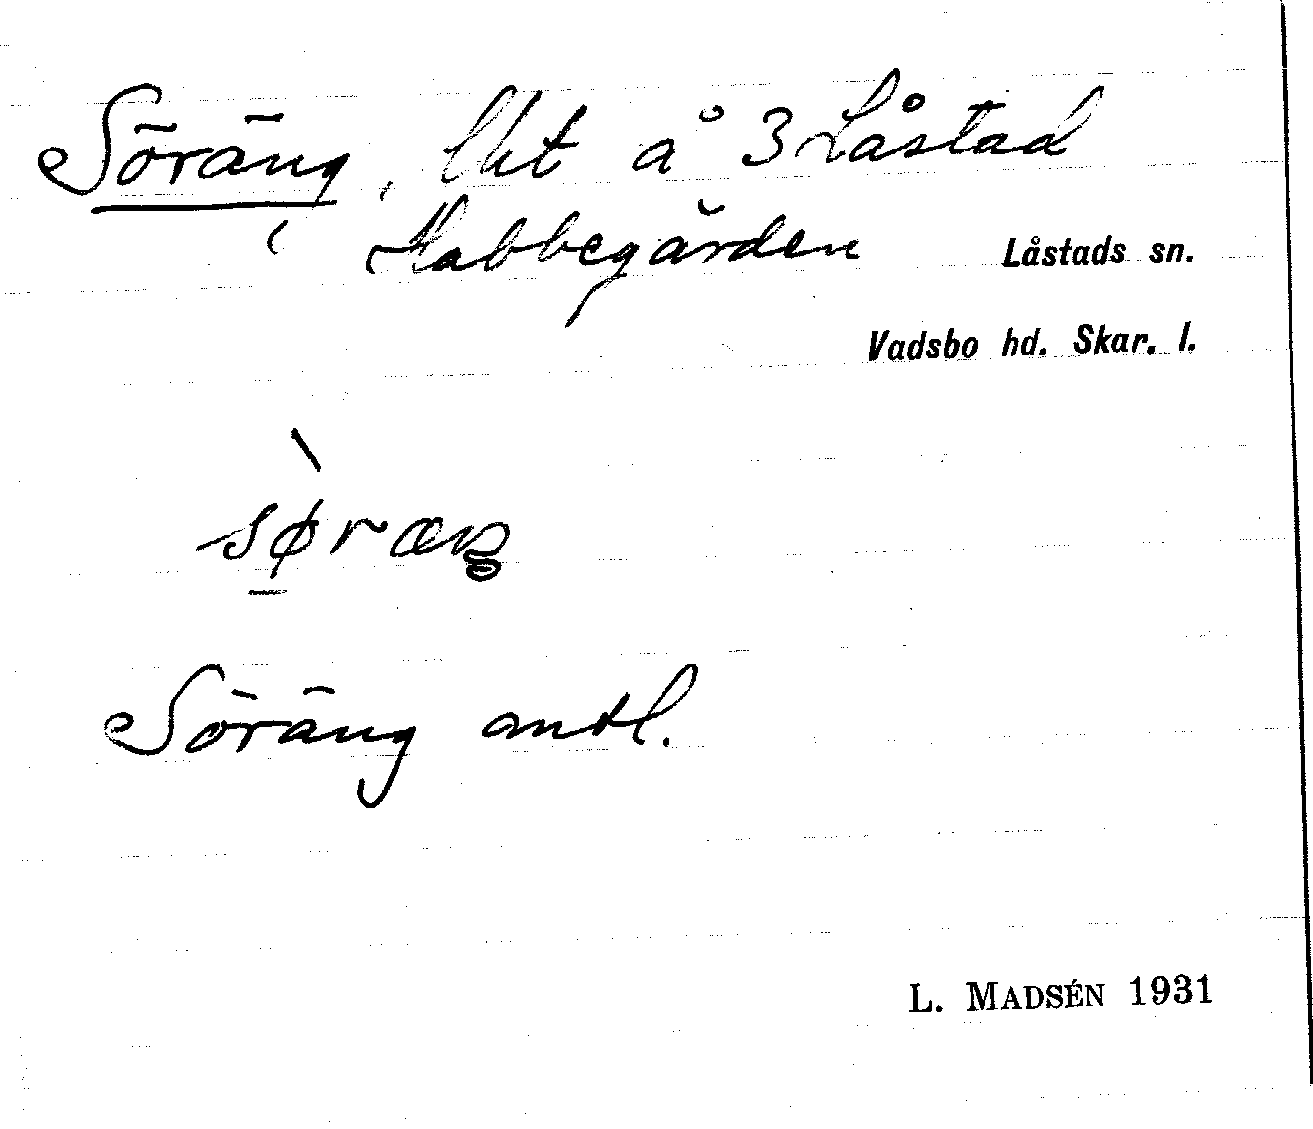 Söräng, lht å 3 Låstad
Habbegården Låstads sn.
Vadsbo hd. Skar. l.
søræŋ
Söräng antl.
L. MADSÉN 1931